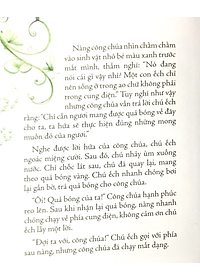 Nàng công chúa nhìn chằm chằm
vào sinh vật nhỏ bé màu xanh trước
mắt mình, thầm nghĩ: "Nó đang
nói cái gì vậy nhỉ? Một con ếch chỉ
nên sống ở trong ao chứ không phải
trong cung điện." Tuy nghĩ như vậy
nhưng công chúa vẫn trả lời chú ếch
rằng: "Chỉ cần ngươi mang được quả bóng về đây
cho ta, ta hứa sẽ thực hiện đúng những mong
muốn đó của ngươi."
Nghe được lời hứa của công chúa, chú ếch
ngoác miệng cười. Sau đó, chú nhảy ùm xuống
nước. Chỉ chốc lát sau, chú đã quay lại, mang
theo quả bóng vàng. Chú ếch nhanh chóng bơi
lại gần bờ, trả quả bóng cho công chúa.
"Ôi! Quả bóng của ta!" Công chúa hạnh phúc
reo lên. Sau khi nhận lại quả bóng, nàng nhanh
chóng chạy về phía cung điện, không cảm ơn chú
ếch lấy một lời.
"Đợi ta với, công chúa!" Chú ếch gọi với phía
sau nàng, nhưng công chúa đã chạy mất dạng.